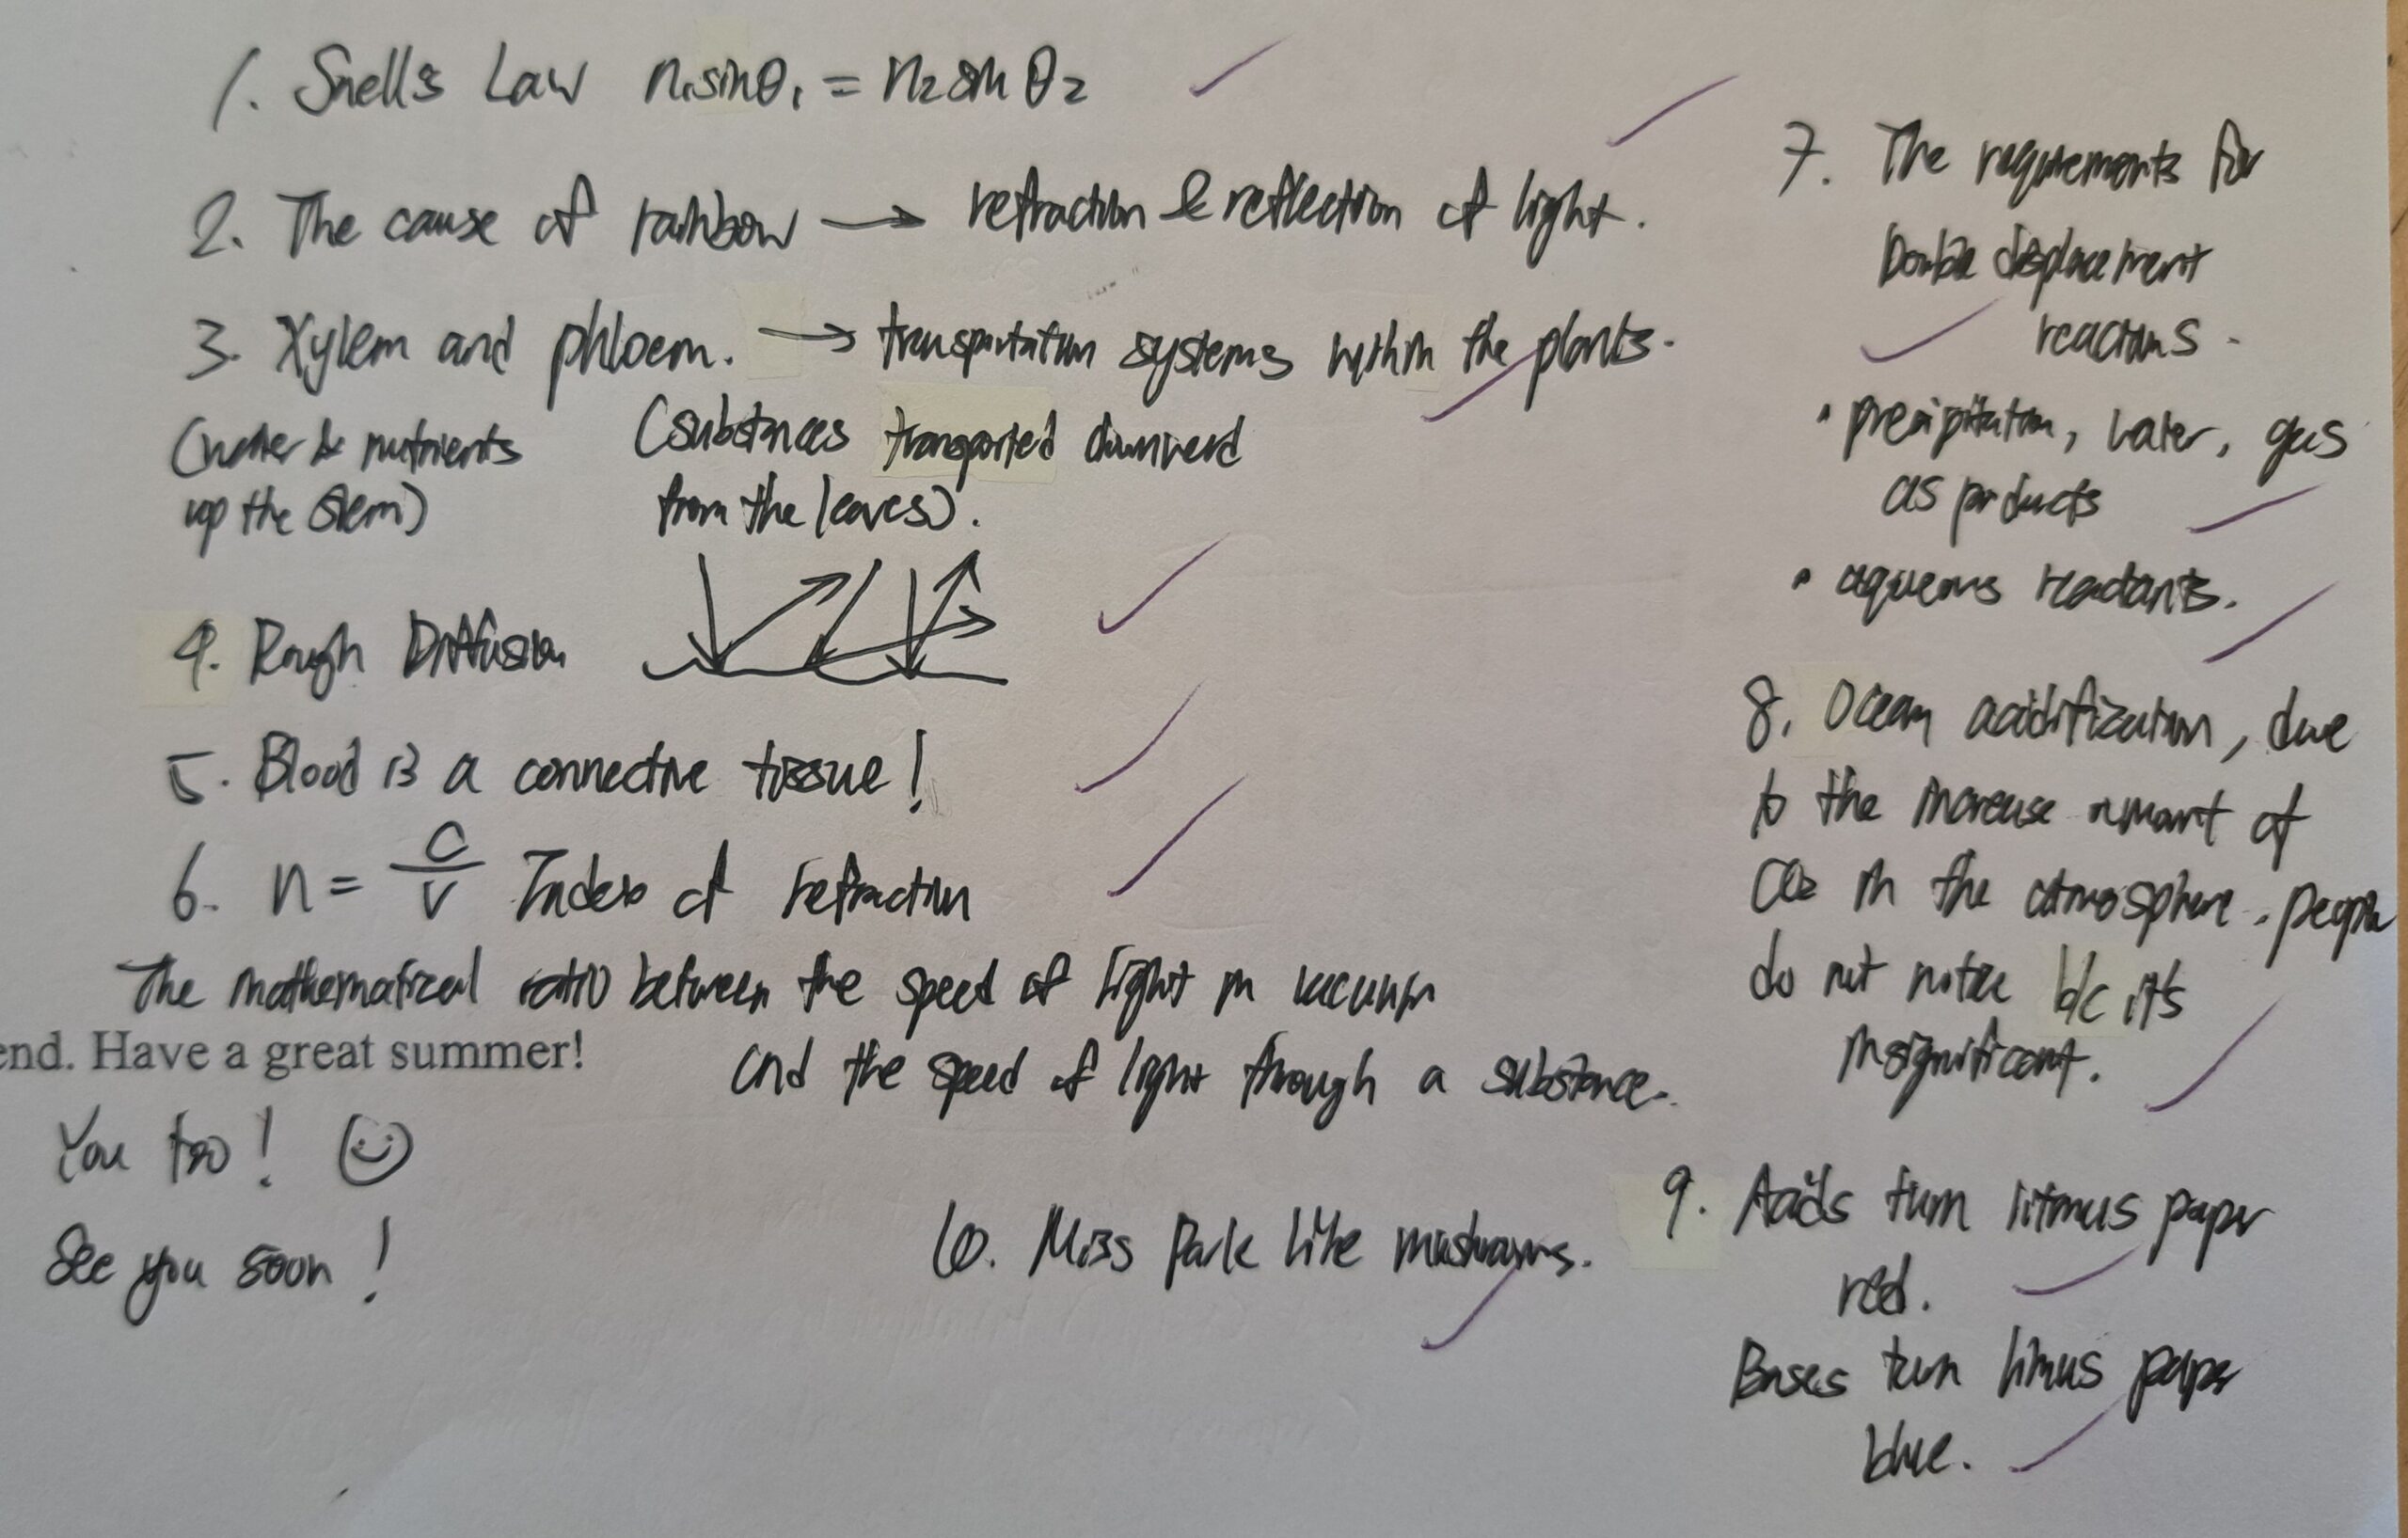 1. Snells Law n₁sinθ₁ = n₂sinθ₂
2. The cause of rainbow → refraction & reflection of light.
3. Xylem and phloem. → transportation systems within the plants.
(water & nutrients
up the stem)
(substances transported downward
from the leaves).
4. Rough Diffusion
5. Blood is a connective tissue!
6. n = c/v Index of refraction
The mathematical ratio between the speed of light in vacuum
and the speed of light through a substance.
end. Have a great summer!
You too! ☺
See you soon!
7. The requirements for
Double displacement
reactions.
• precipitation, water, gas
as products
• aqueous reactants.
8. Ocean acidification, due
to the increase amount of
CO₂ in the atmosphere. people
do not notice b/c it's
insignificant.
9. Acids turn litmus paper
red.
Bases turn limus paper
blue.
10. Miss Park like mushrooms.